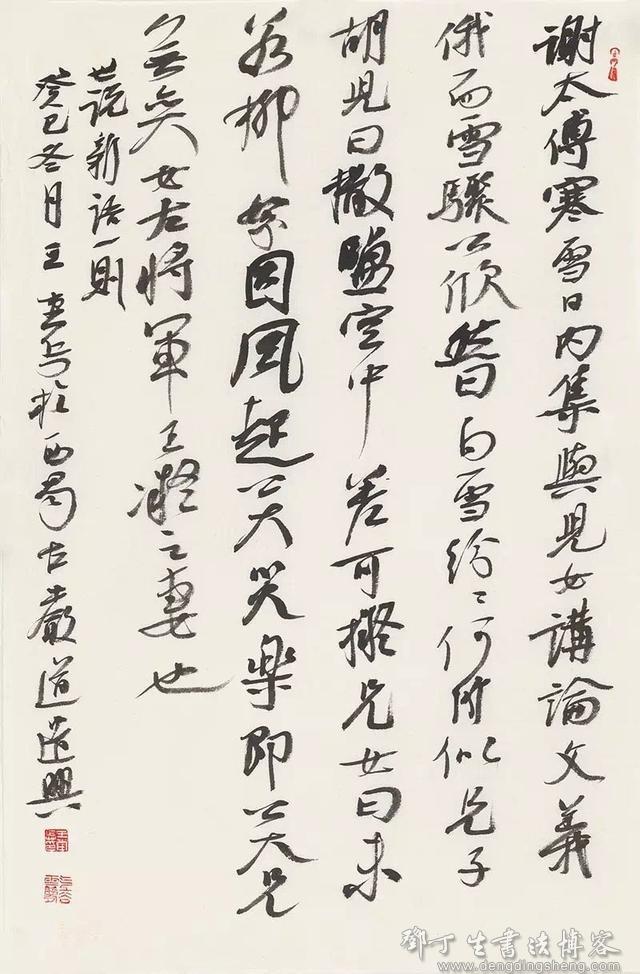 謝太傅寒雪日內集與兒女講論文義
俄而雪驟公欣然曰白雪紛紛何所似兄子
胡兒曰撒鹽空中差可擬兄女曰未
若柳絮因風起公大笑樂即公大兄
無奕女左將軍王凝之妻也
世說新語一則
癸巳冬月王 書於西蜀古嚴道
鄧丁生書法博客
www.dengdingsheng.com